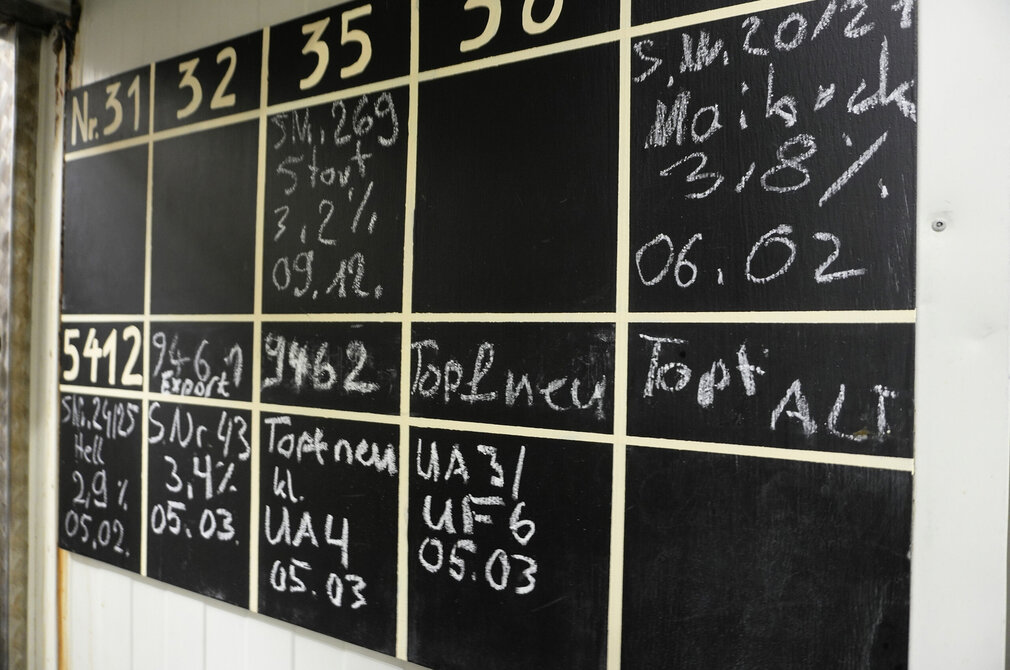 Nr. 31
32
35
S.Nr. 269
Stout
3,2%
09.12.
S.Nr. 20/21
Maibock
3,8%
06.02
5412
Export
S.Nr. 24/25
Hell
2,9%
05.02.
S Nr. 43
3,4%
05.03.
9462
Topf neu
kl.
UA4
05.03
Topf neu
UA3/
UF6
05.03
Topf
ALT